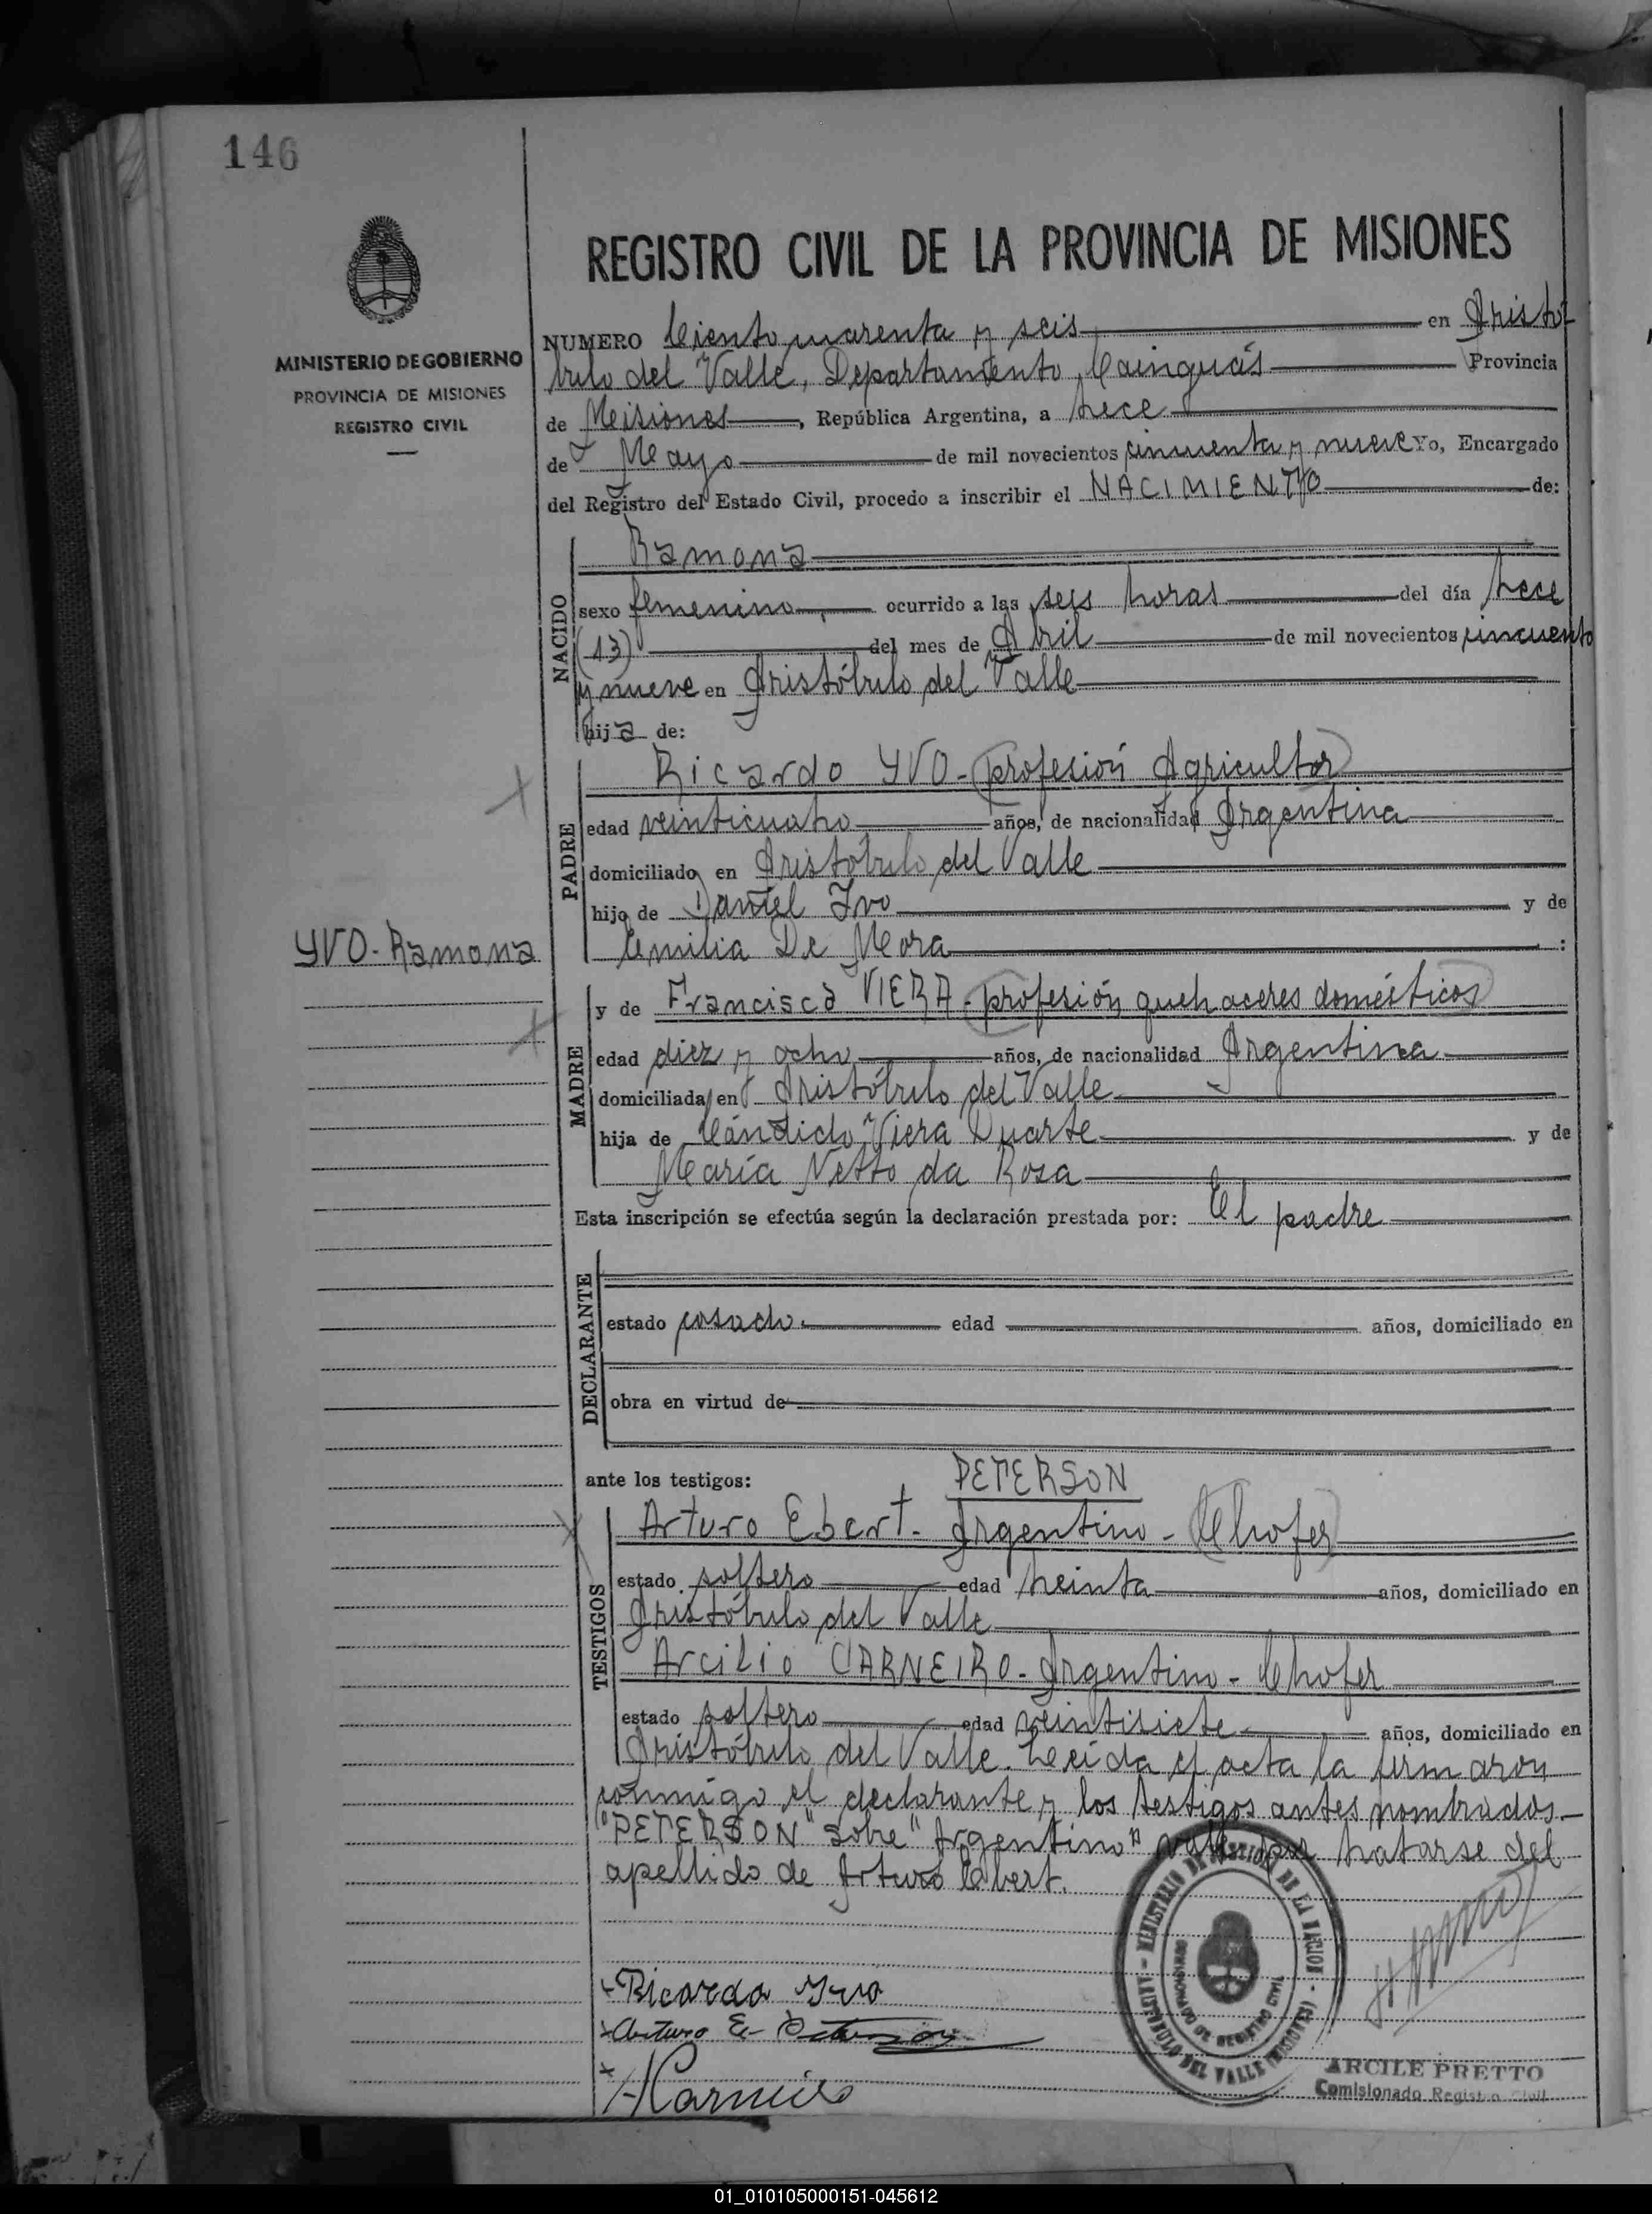 146
MINISTERIO DE GOBIERNO
PROVINCIA DE MISIONES
REGISTRO CIVIL
REGISTRO CIVIL DE LA PROVINCIA DE MISIONES
NUMERO Ciento cuarenta y seis en Aristó
bulo del Valle, Departamento Cainguás Provincia
de Misiones, República Argentina, a trece
de Mayo de mil novecientos cincuenta y nueve Yo, Encargado
del Registro del Estado Civil, procedo a inscribir el NACIMIENTO de:
NACIDO
Ramona
sexo femenino, ocurrido a las seis horas del día trece
(13) del mes de Abril de mil novecientos cincuenta
y nueve en Aristóbulo del Valle
hija de:
PADRE
Ricardo YVO - profesión Agricultor
edad veinticuatro años, de nacionalidad Argentina
domiciliado en Aristóbulo del Valle
hijo de Daniel Ivo y de
Emilia De Mora :
YVO - Ramona
MADRE
y de Francisca VIERA - profesión quehaceres domésticos
edad diez y ocho años, de nacionalidad Argentina
domiciliada en Aristóbulo del Valle
hija de Cándido Viera Duarte y de
María Netto da Rosa
Esta inscripción se efectúa según la declaración prestada por: El padre
DECLARANTE
estado casado. edad años, domiciliado en
obra en virtud de
ante los testigos: PETERSON
TESTIGOS
Arturo Ebert - Argentino - Chofer
estado soltero edad treinta años, domiciliado en
Aristóbulo del Valle
Arcilio CARNEIRO - Argentino - Chofer
estado soltero edad veintisiete años, domiciliado en
Aristóbulo del Valle. Leída el acta la firmaron
conmigo el declarante y los testigos antes nombrados.
"PETERSON" sobre "Argentino" vale por tratarse del
apellido de Arturo Ebert.
Ricardo Yvo
Arturo E. Peterson
ARISTOBULO DEL VALLE (MISIONES)
ARCILE PRETTO
Comisionado Registro Civil
01_010105000151-045612